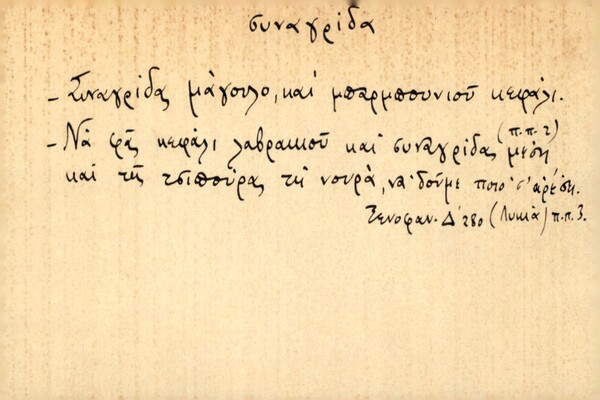 συναγρίδα
- Συναγρίδας μάγουλο, καί μπαρμπουνιοῦ κεφάλι.
(π.π. 2)
- Νὰ φᾶς κεφάλι λαβρακιοῦ καί συναγρίδας μέση
καί τῆς τσιπούρας τή νουρὰ, νὰ δοῦμε ποιό σ' ἀρέσῃ.
Ξενοφαν. Δ' 280 (Λυκία) π.π. 3.